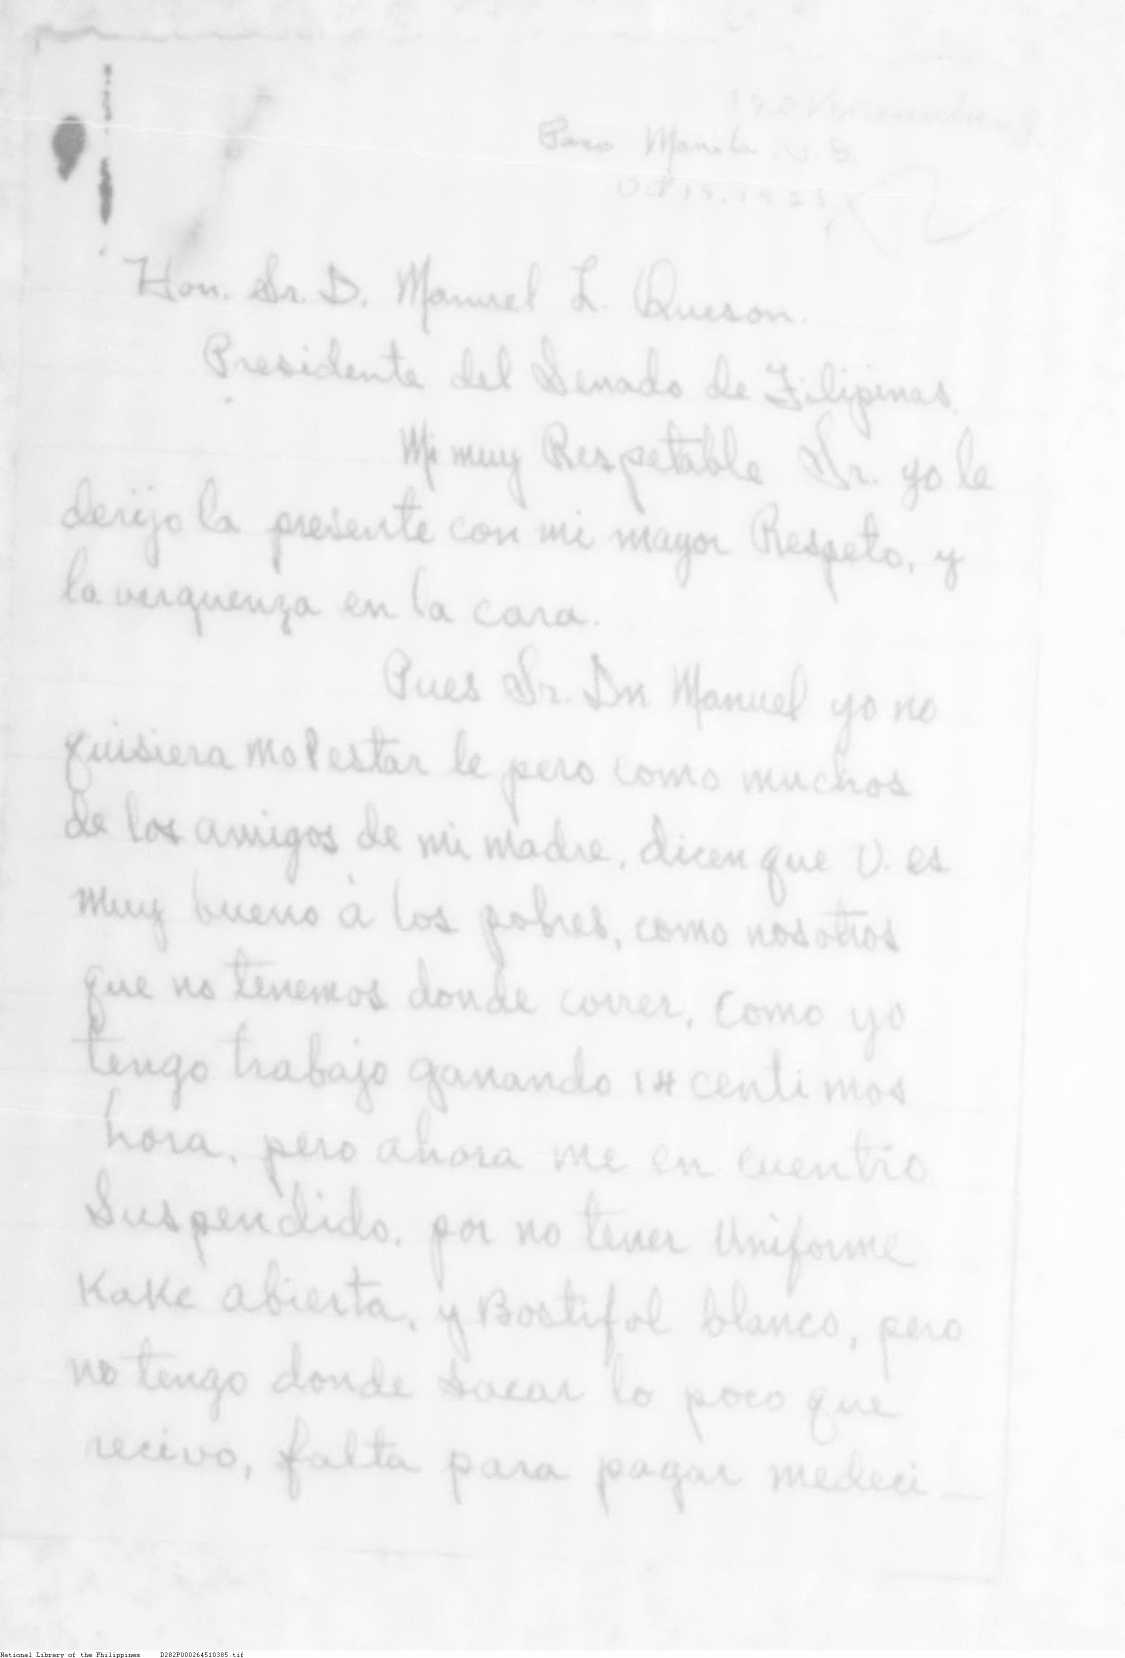 Paco Manila
Oct 15, 1923
Hon. Sr. D. Manuel L. Queson.
Presidente del Senado de Filipinas.
Mi muy Respetable Sr. yo le
derijo la presente con mi mayor Respeto, y
la verquenza en la cara.
Pues Sr. Dn Manuel yo no
quisiera molestar le pero como muchos
de los amigos de mi madre, dicen que U. es
muy bueno à los pobres, como nosotros
que no tenemos donde correr, como yo
tengo trabajo ganando 14 centi mos
hora, pero ahora me en cuentro
Suspendido, por no tener Uniforme
Kake abierta, y Bostifol blanco, pero
no tengo donde sacar lo poco que
recivo, falta para pagar medeci
National Library of the Philippines D282P000264510385.tif